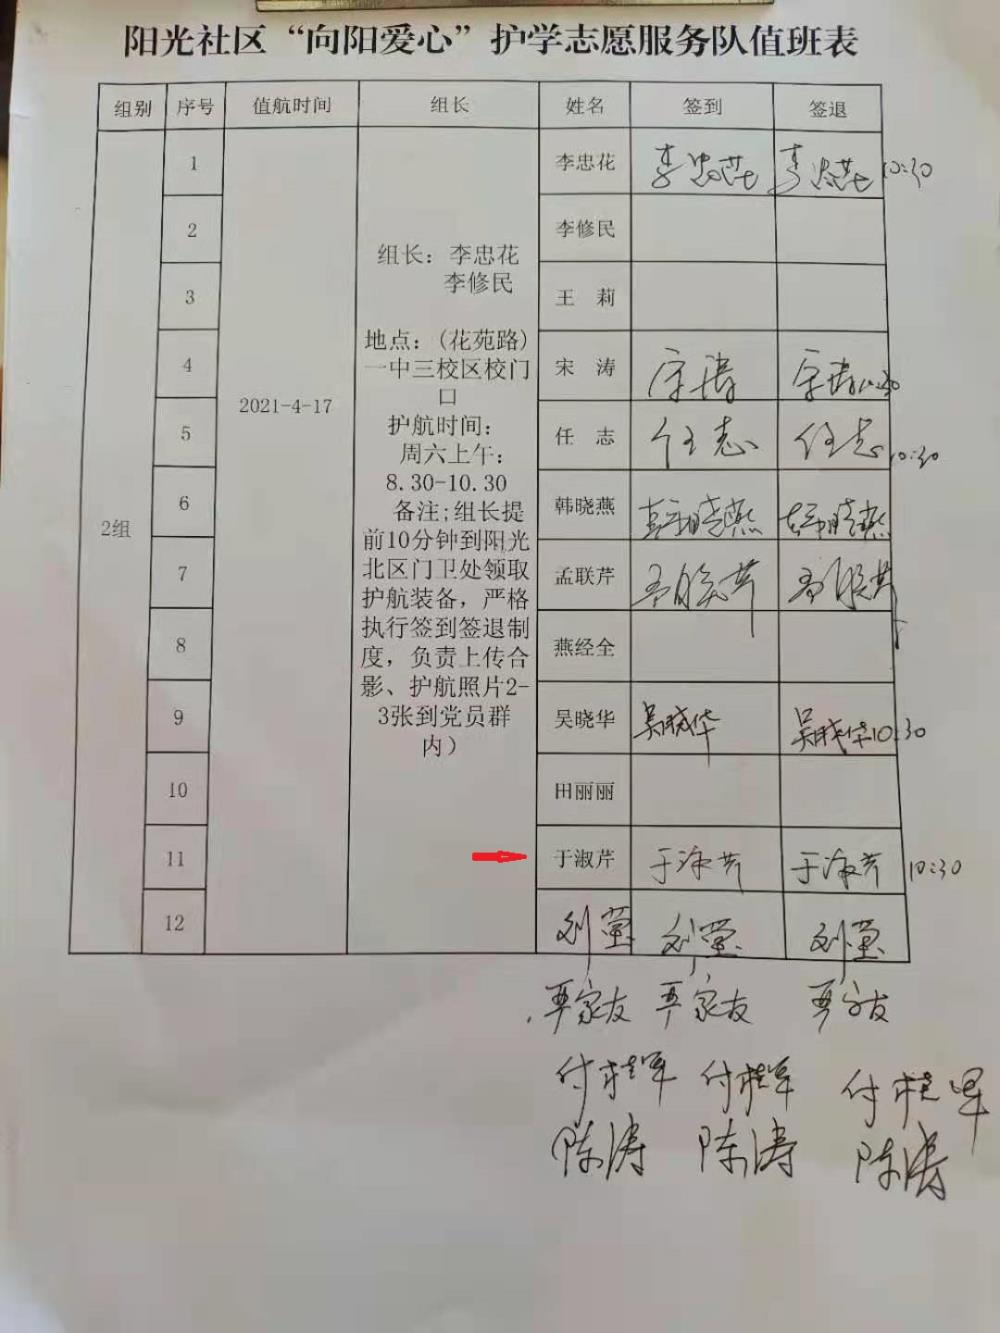 阳光社区“向阳爱心”护学志愿服务队值班表
组别 序号 值航时间 组长 姓名 签到 签退
2组
2021-4-17
组长：李忠花
李修民
地点：(花苑路)
一中三校区校门
口
护航时间：
周六上午：
8.30-10.30
备注;组长提
前10分钟到阳光
北区门卫处领取
护航装备，严格
执行签到签退制
度，负责上传合
影、护航照片2-
3张到党员群
内）
1 李忠花 李忠花 李忠花 10:30
2 李修民
3 王 莉
4 宋 涛 宋涛 宋涛 10:30
5 任 志 任志 任志 10:30
6 韩晓燕 韩晓燕 韩晓燕
7 孟联芹 孟联芹 孟联芹
8 燕经全
9 吴晓华 吴晓华 吴晓华 10:30
10 田丽丽
11 于淑芹 于淑芹 于淑芹 10:30
12 刘莹 刘莹 刘莹
严家友 严家友 严家友
付桂军 付桂军 付桂军
陈涛 陈涛 陈涛